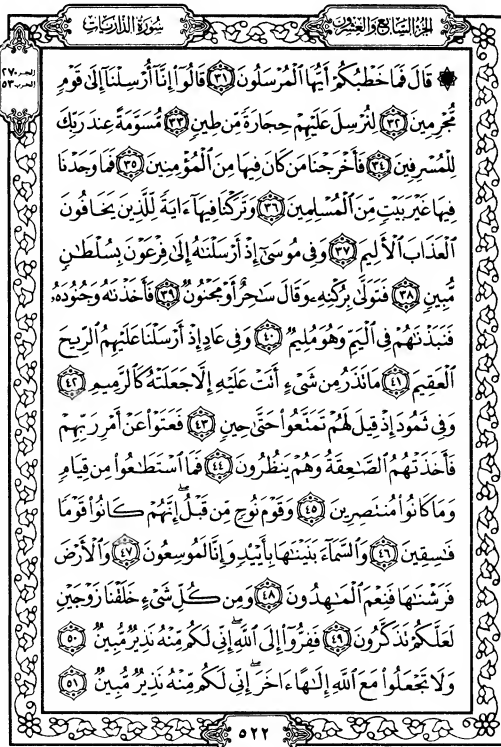 سُورَةُ الذَّارِيَات
الجزء السابع والعشرون
الجزء ٢٧
الحزب ٥٣
۞ قَالَ فَمَا خَطْبُكُمْ أَيُّهَا ٱلْمُرْسَلُونَ ٣١ قَالُوٓا۟ إِنَّآ أُرْسِلْنَآ إِلَىٰ قَوْمٍ
مُّجْرِمِينَ ٣٢ لِنُرْسِلَ عَلَيْهِمْ حِجَارَةً مِّن طِينٍ ٣٣ مُّسَوَّمَةً عِندَ رَبِّكَ
لِلْمُسْرِفِينَ ٣٤ فَأَخْرَجْنَا مَن كَانَ فِيهَا مِنَ ٱلْمُؤْمِنِينَ ٣٥ فَمَا وَجَدْنَا
فِيهَا غَيْرَ بَيْتٍ مِّنَ ٱلْمُسْلِمِينَ ٣٦ وَتَرَكْنَا فِيهَآ ءَايَةً لِّلَّذِينَ يَخَافُونَ
ٱلْعَذَابَ ٱلْأَلِيمَ ٣٧ وَفِى مُوسَىٰٓ إِذْ أَرْسَلْنَٰهُ إِلَىٰ فِرْعَوْنَ بِسُلْطَٰنٍ
مُّبِينٍ ٣٨ فَتَوَلَّىٰ بِرُكْنِهِۦ وَقَالَ سَٰحِرٌ أَوْ مَجْنُونٌ ٣٩ فَأَخَذْنَٰهُ وَجُنُودَهُۥ
فَنَبَذْنَٰهُمْ فِى ٱلْيَمِّ وَهُوَ مُلِيمٌ ٤٠ وَفِى عَادٍ إِذْ أَرْسَلْنَا عَلَيْهِمُ ٱلرِّيحَ
ٱلْعَقِيمَ ٤١ مَا تَذَرُ مِن شَىْءٍ أَتَتْ عَلَيْهِ إِلَّا جَعَلَتْهُ كَٱلرَّمِيمِ ٤٢
وَفِى ثَمُودَ إِذْ قِيلَ لَهُمْ تَمَتَّعُوا۟ حَتَّىٰ حِينٍ ٤٣ فَعَتَوْا۟ عَنْ أَمْرِ رَبِّهِمْ
فَأَخَذَتْهُمُ ٱلصَّٰعِقَةُ وَهُمْ يَنظُرُونَ ٤٤ فَمَا ٱسْتَطَٰعُوا۟ مِن قِيَامٍ
وَمَا كَانُوا۟ مُنتَصِرِينَ ٤٥ وَقَوْمَ نُوحٍ مِّن قَبْلُ ۖ إِنَّهُمْ كَانُوا۟ قَوْمًا
فَٰسِقِينَ ٤٦ وَٱلسَّمَآءَ بَنَيْنَٰهَا بِأَيْي۟دٍ وَإِنَّا لَمُوسِعُونَ ٤٧ وَٱلْأَرْضَ
فَرَشْنَٰهَا فَنِعْمَ ٱلْمَٰهِدُونَ ٤٨ وَمِن كُلِّ شَىْءٍ خَلَقْنَا زَوْجَيْنِ
لَعَلَّكُمْ تَذَكَّرُونَ ٤٩ فَفِرُّوٓا۟ إِلَى ٱللَّهِ ۖ إِنِّى لَكُم مِّنْهُ نَذِيرٌ مُّبِينٌ ٥٠
وَلَا تَجْعَلُوا۟ مَعَ ٱللَّهِ إِلَٰهًا ءَاخَرَ ۖ إِنِّى لَكُم مِّنْهُ نَذِيرٌ مُّبِينٌ ٥١
٥٢٢